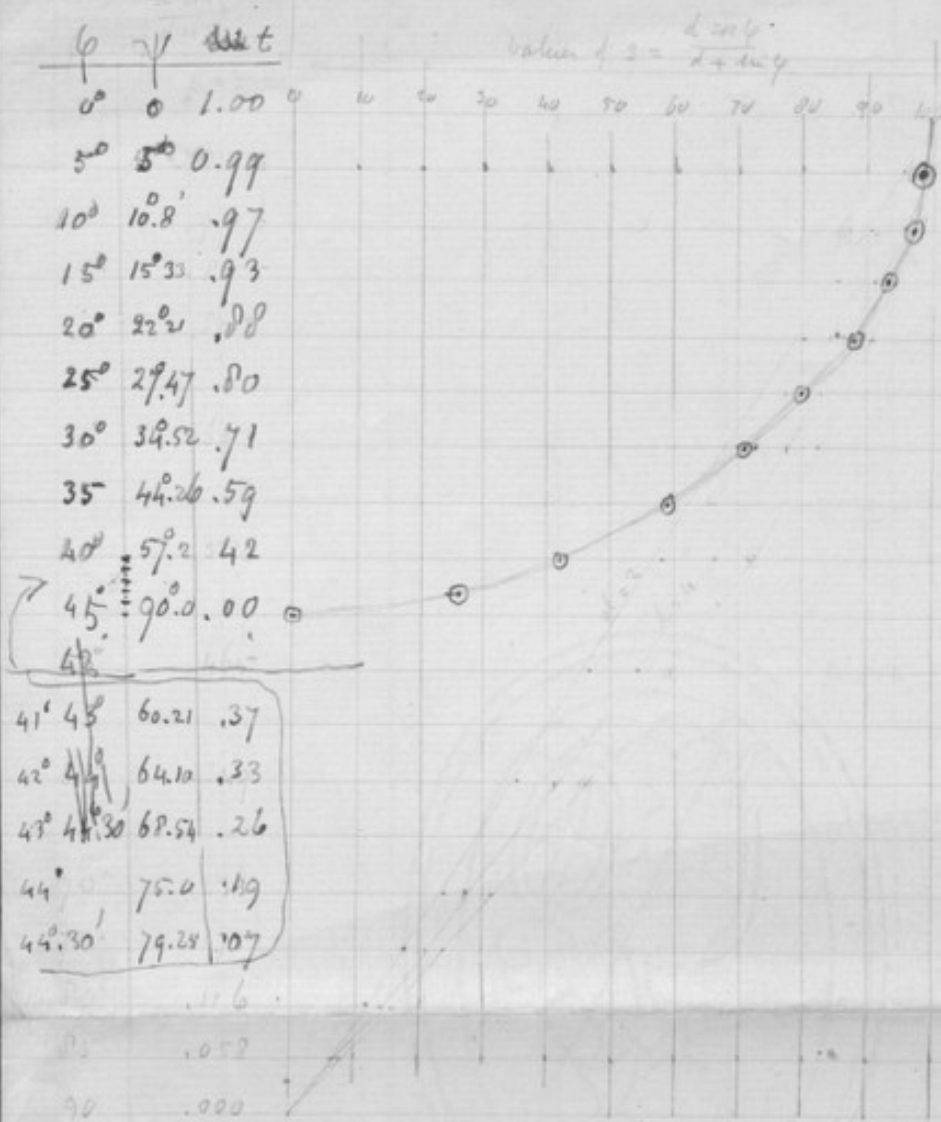 φ ψ t
0° 0 1.00 0 10 20 30 40 50 60 70 80 90
5° 5° 0.99
10° 10°.8' .97
15° 15°33 .93
20° 22°21 .88
25° 27°.47 .80
30° 34°.52 .71
35 44°.26 .59
40° 57°.2 42
45° 90°.0 .00
42
41° 43° 60.21 .37
42° 64.10 .33
43° 68.54 .26
44° 75.0
44°.30' 79.28 .07
.058
90 .000